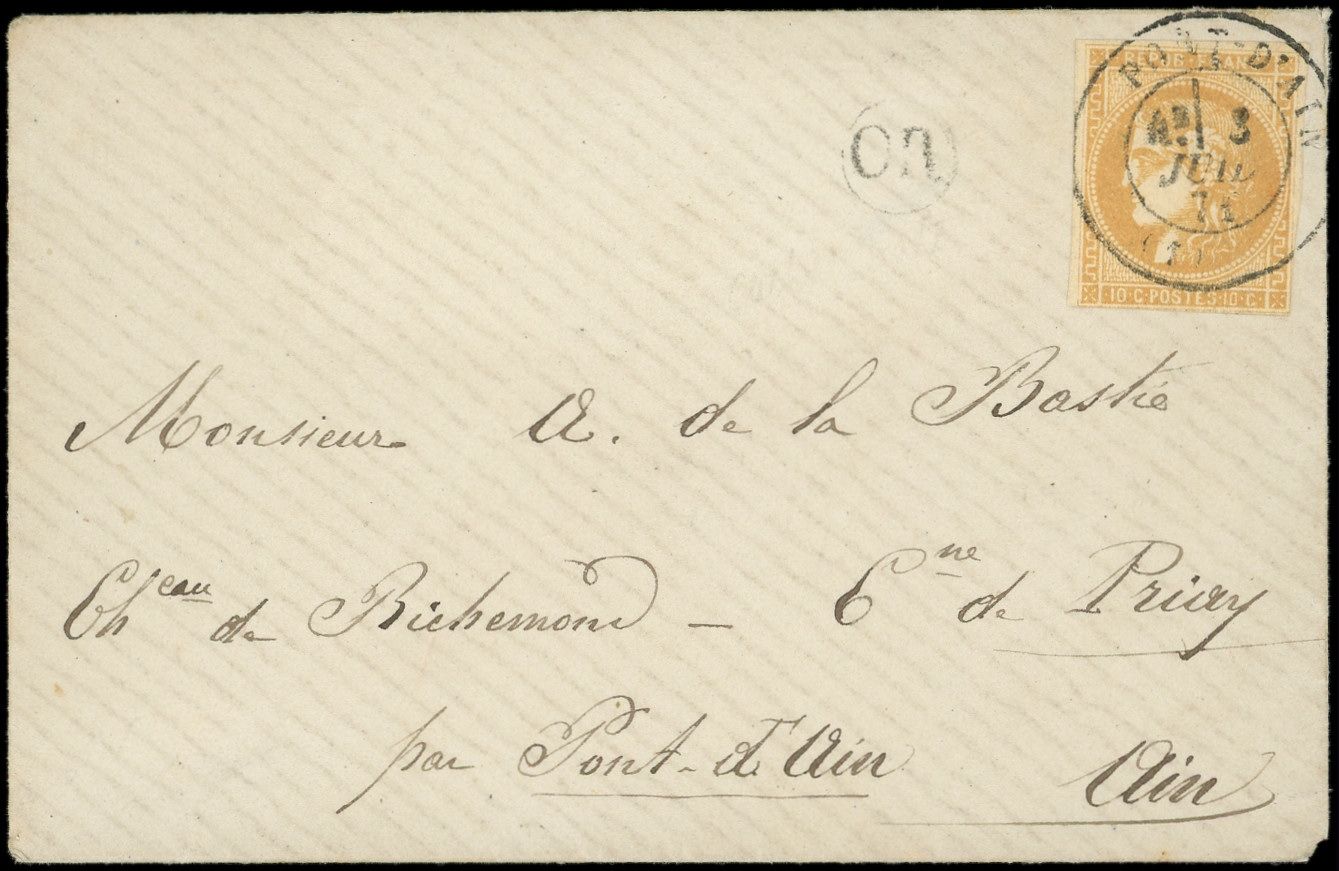 PONT-D'AIN
3
JUIL
71
(1)
REPUB·FRANC
10·C·POSTES·10·C
OR
Monsieur A. de la Bastie
Ch<sup>eau</sup> de Richemond – C<sup>ne</sup> de Priay
par Pont-d'Ain Ain